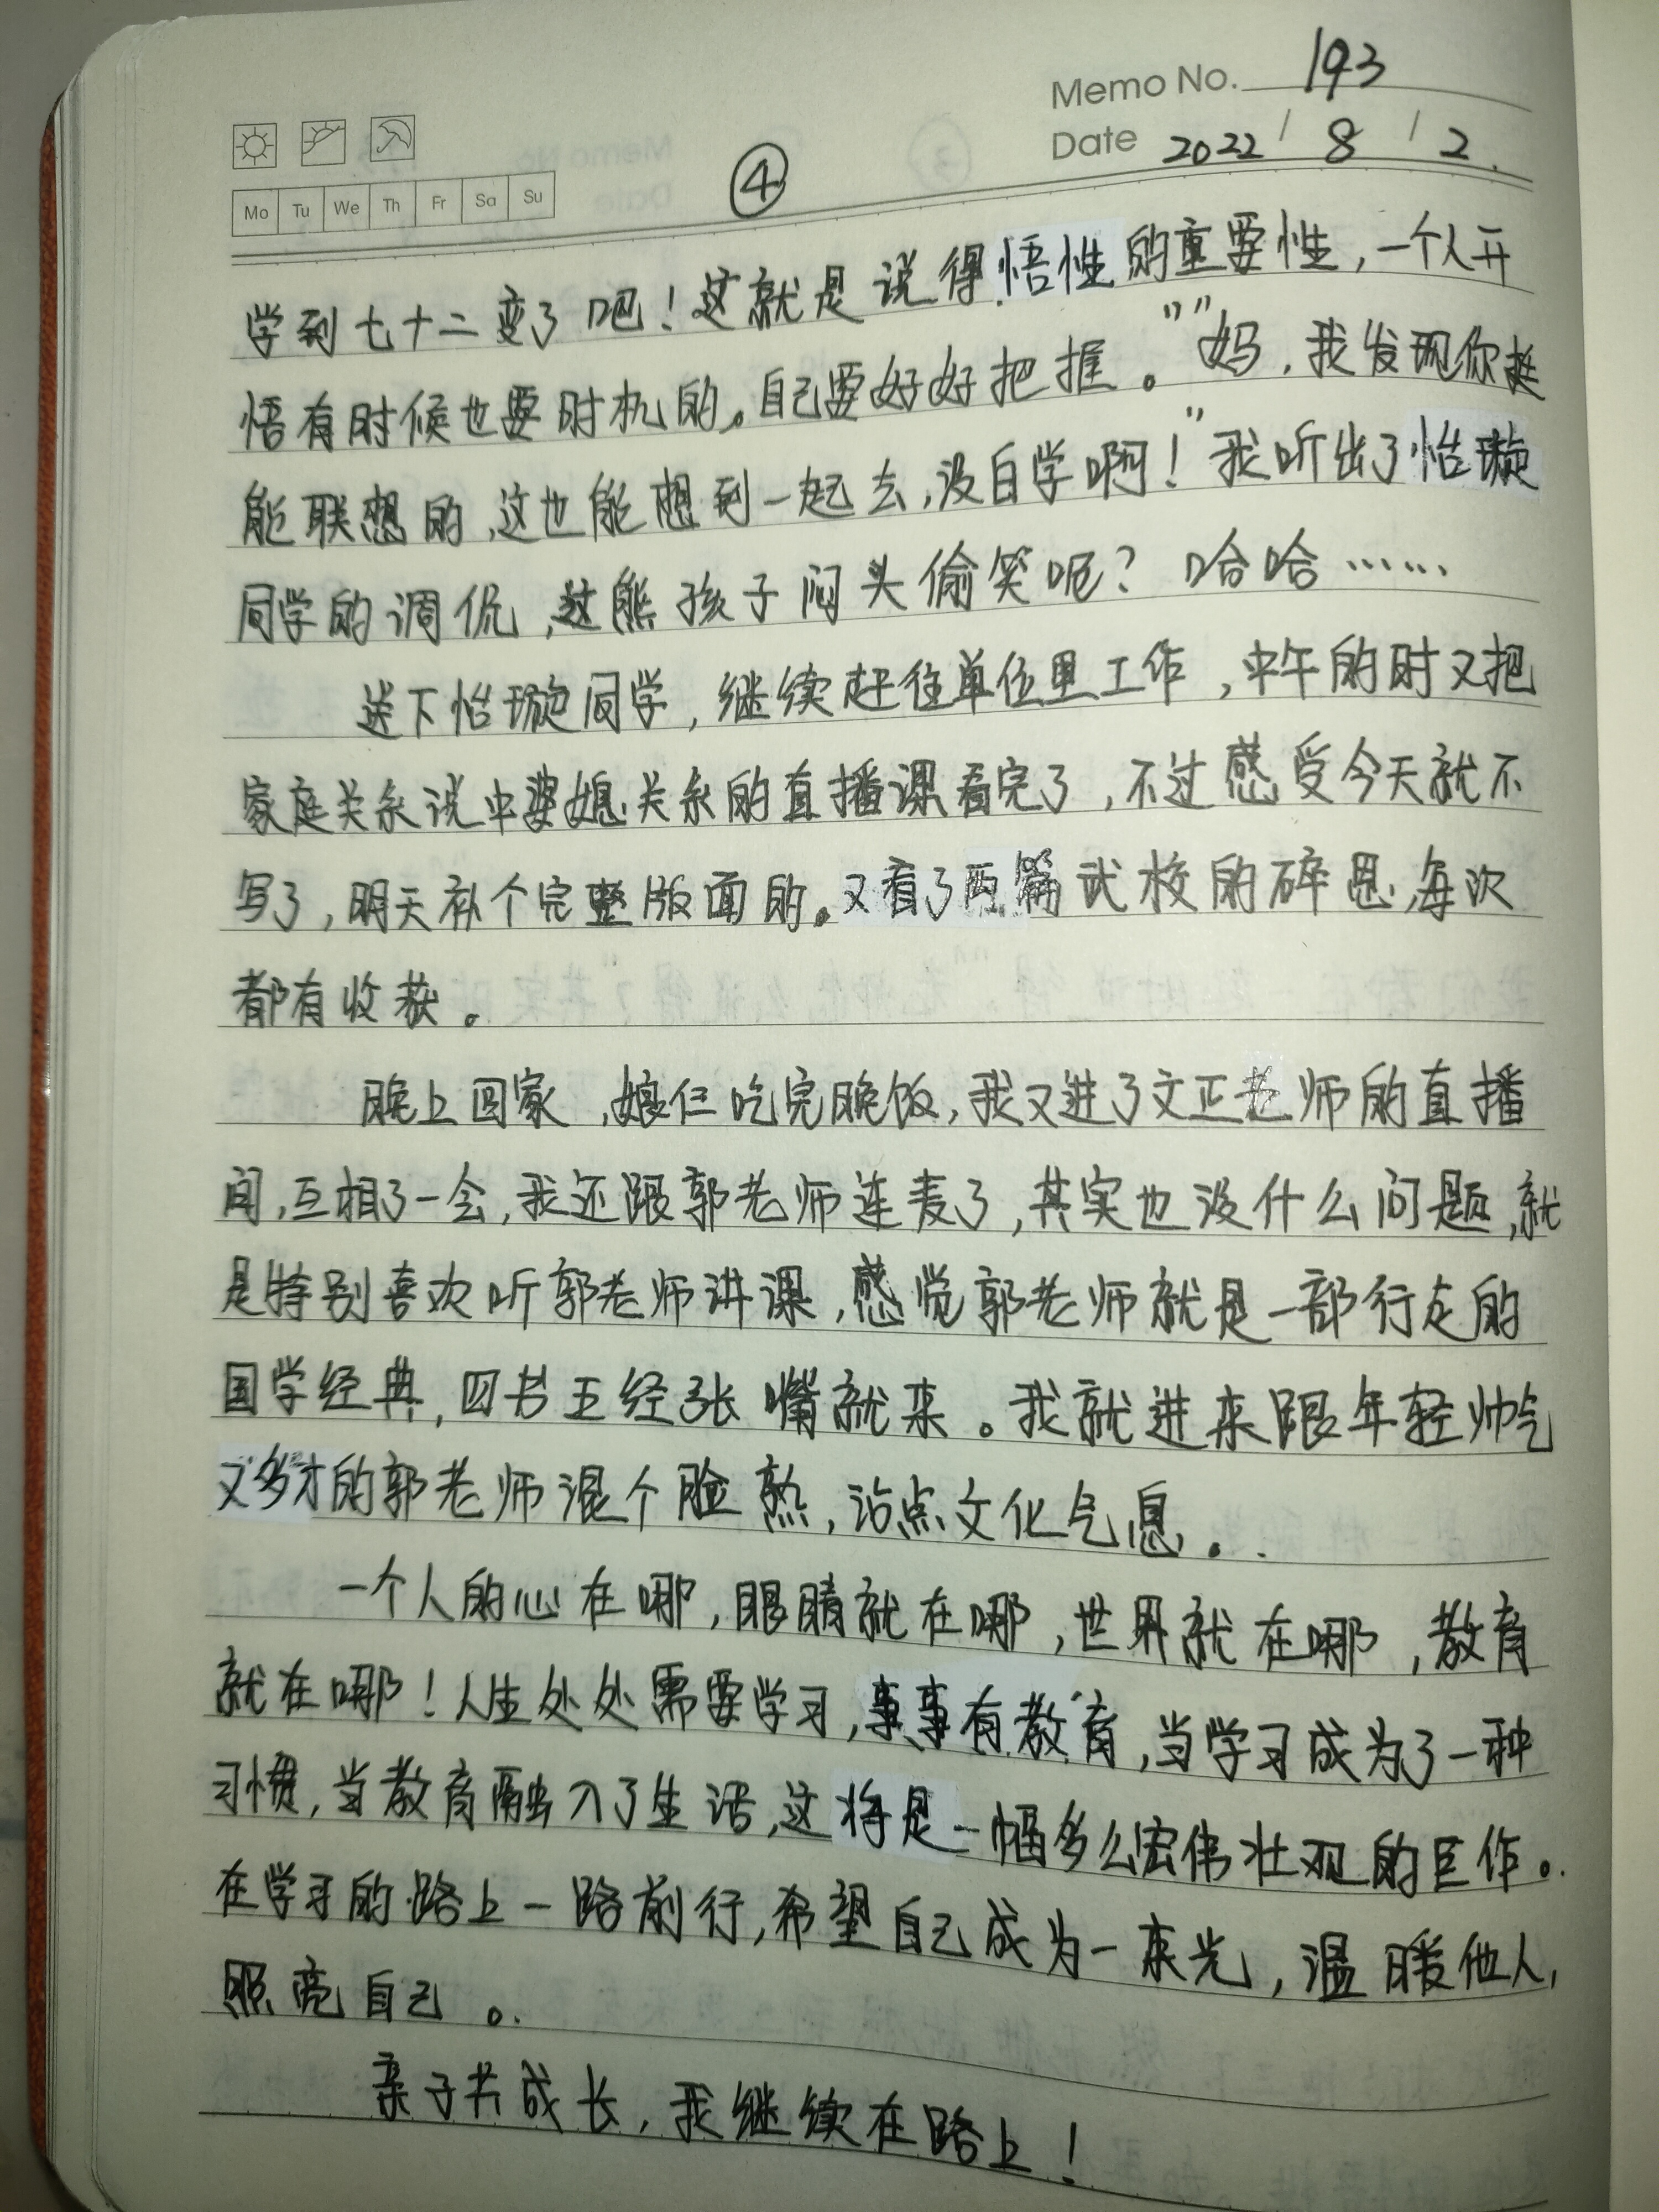 Memo No. 193
Date 2022 / 8 / 2.
④
Mo Tu We Th Fr Sa Su
学到七十二变了吧！这就是说得悟性的重要性，一个人开
悟有时候也要时机的。自己要好好把握。”“妈，我发现你挺
能联想的，这也能想到一起去，没白学啊！”我听出了怡璇
同学的调侃，这熊孩子闷头偷笑呢？哈哈……
送下怡璇同学，继续赶往单位里工作，中午的时又把
家庭关系说中婆媳关系的直播课看完了，不过感受今天就不
写了，明天补个完整版面的。又看了两篇武校的碎思，每次
都有收获。
晚上回家，娘仨吃完晚饭，我又进了文正老师的直播
间，互相了一会，我还跟郭老师连麦了，其实也没什么问题，就
是特别喜欢听郭老师讲课，感觉郭老师就是一部行走的
国学经典，四书五经张嘴就来。我就进来跟年轻帅气
又多才的郭老师混个脸熟，沾点文化气息。
一个人的心在哪，眼睛就在哪，世界就在哪，教育
就在哪！人生处处需要学习，事事有教育，当学习成为了一种
习惯，当教育融入了生活，这将是一幅多么宏伟壮观的巨作。
在学习的路上一路前行，希望自己成为一束光，温暖他人，
照亮自己。
亲子共成长，我继续在路上！